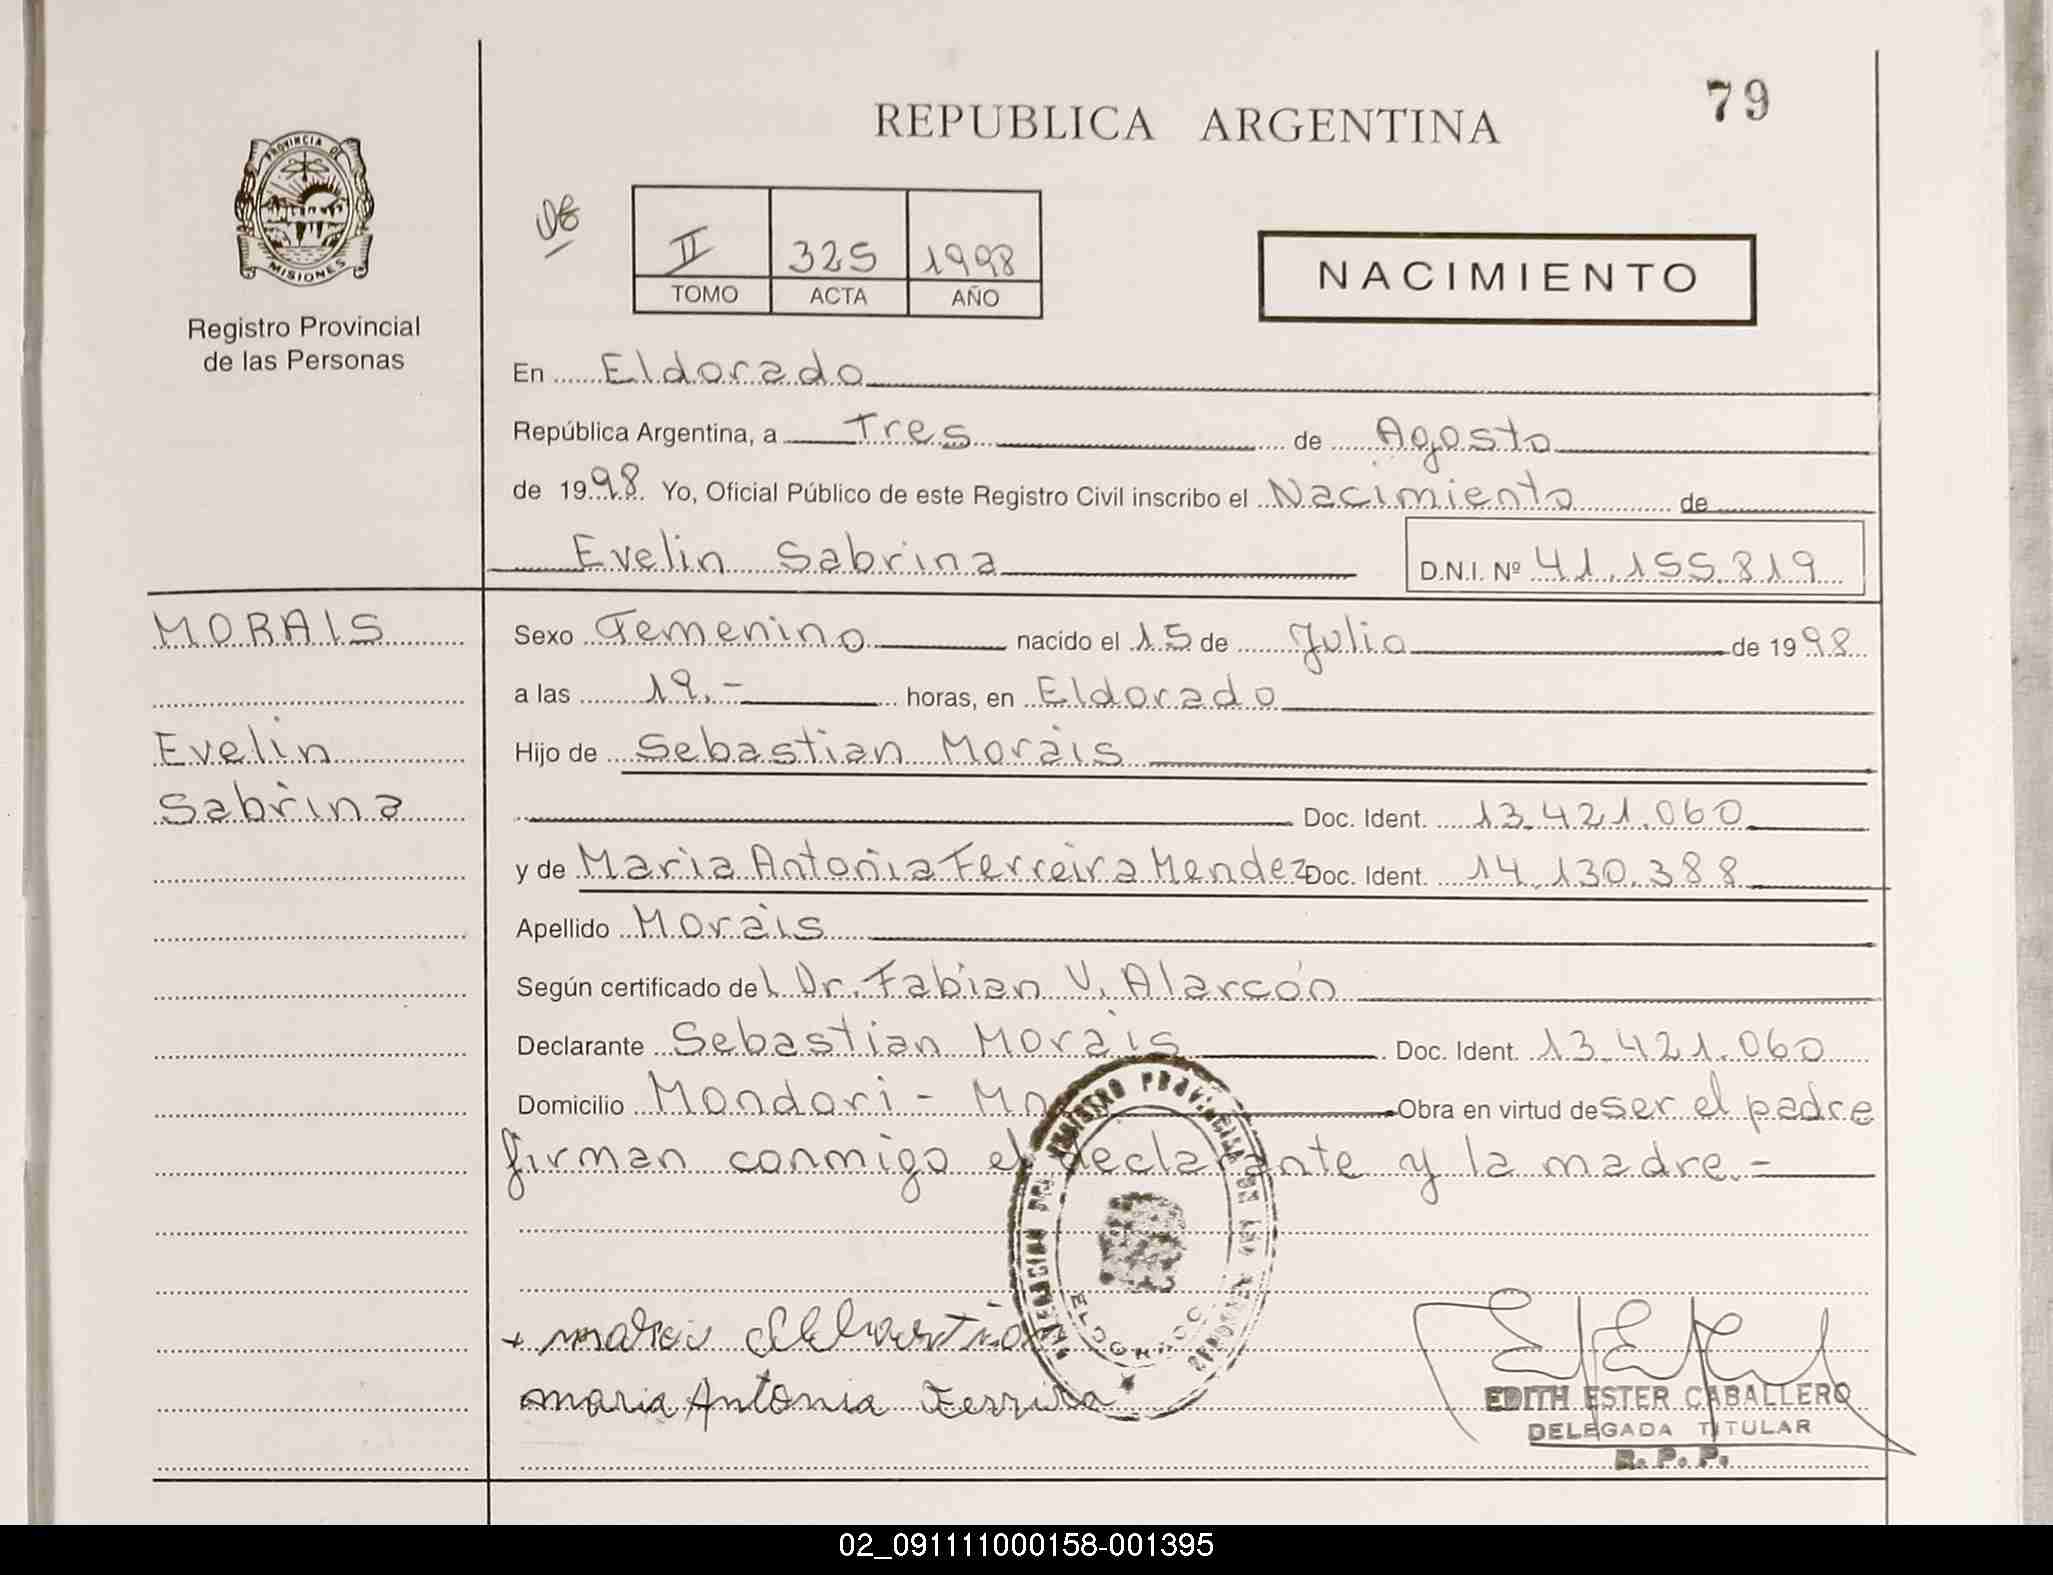 79
REPUBLICA ARGENTINA
PROVINCIA DE
MISIONES
Registro Provincial
de las Personas
II 325 1998
TOMO ACTA AÑO
NACIMIENTO
En Eldorado
República Argentina, a Tres de Agosto
de 1998. Yo, Oficial Público de este Registro Civil inscribo el Nacimiento de
Evelin Sabrina D.N.I. Nº 41.155.819
MORAIS
Evelin
Sabrina
Sexo Femenino nacido el 15 de Julio de 1998
a las 19.- horas, en Eldorado
Hijo de Sebastian Morais
Doc. Ident. 13.421.060
y de Maria Antonia Ferreira Mendez Doc. Ident. 14.130.388
Apellido Morais
Según certificado del Dr. Fabian V. Alarcón
Declarante Sebastian Morais Doc. Ident. 13.421.060
Domicilio Mondori - Mn Obra en virtud de ser el padre
firman conmigo el declarante y la madre.-
REGISTRO PROVINCIAL DE LAS
ELDORADO
maria Antonia Ferrira
EDITH ESTER CABALLERO
DELEGADA TITULAR
R. P. P.
02_091111000158-001395